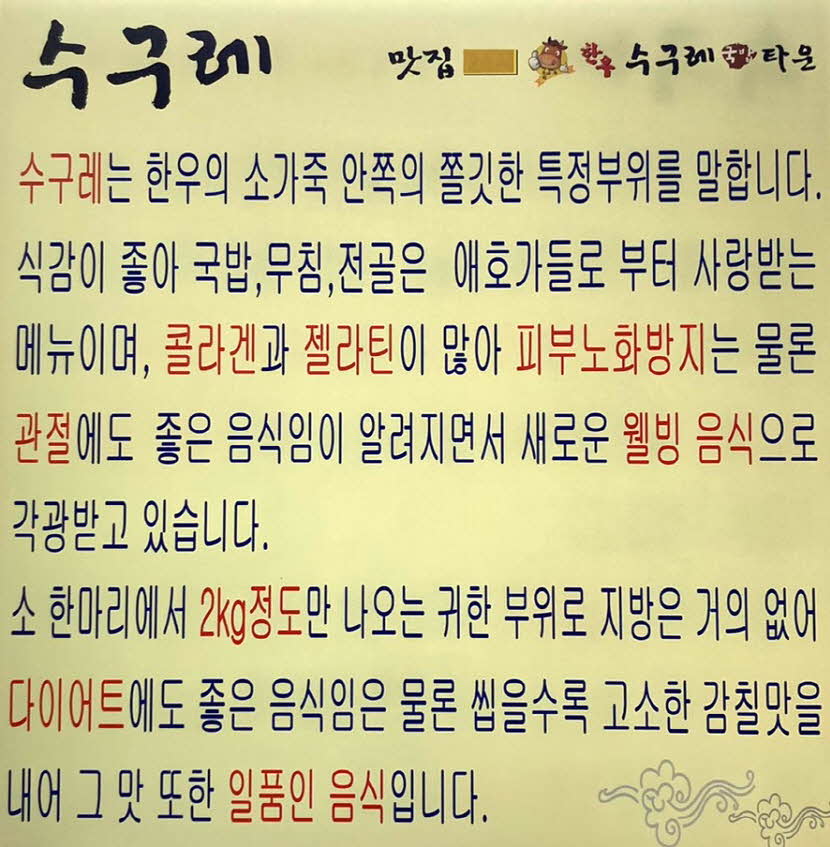 수구레
맛집 한우 수구레 국밥 타운
수구레는 한우의 소가죽 안쪽의 쫄깃한 특정부위를 말합니다.
식감이 좋아 국밥,무침,전골은 애호가들로 부터 사랑받는
메뉴이며, 콜라겐과 젤라틴이 많아 피부노화방지는 물론
관절에도 좋은 음식임이 알려지면서 새로운 웰빙 음식으로
각광받고 있습니다.
소 한마리에서 2kg정도만 나오는 귀한 부위로 지방은 거의 없어
다이어트에도 좋은 음식임은 물론 씹을수록 고소한 감칠맛을
내어 그 맛 또한 일품인 음식입니다.